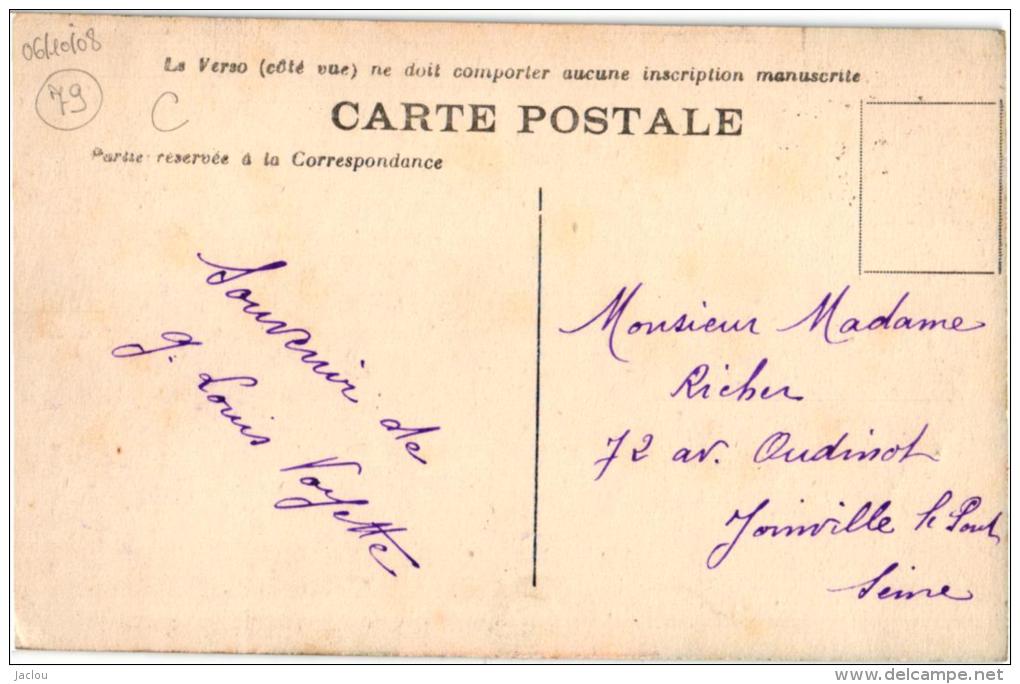 06/10/08
79
C
Le Verso (côté vue) ne doit comporter aucune inscription manuscrite
CARTE POSTALE
Partie réservée à la Correspondance
Souvenir de
J. Louis Voyette
Monsieur Madame
Richer
72 av. Oudinot
Joinville le Pont
Seine
jaclou
www.delcampe.net